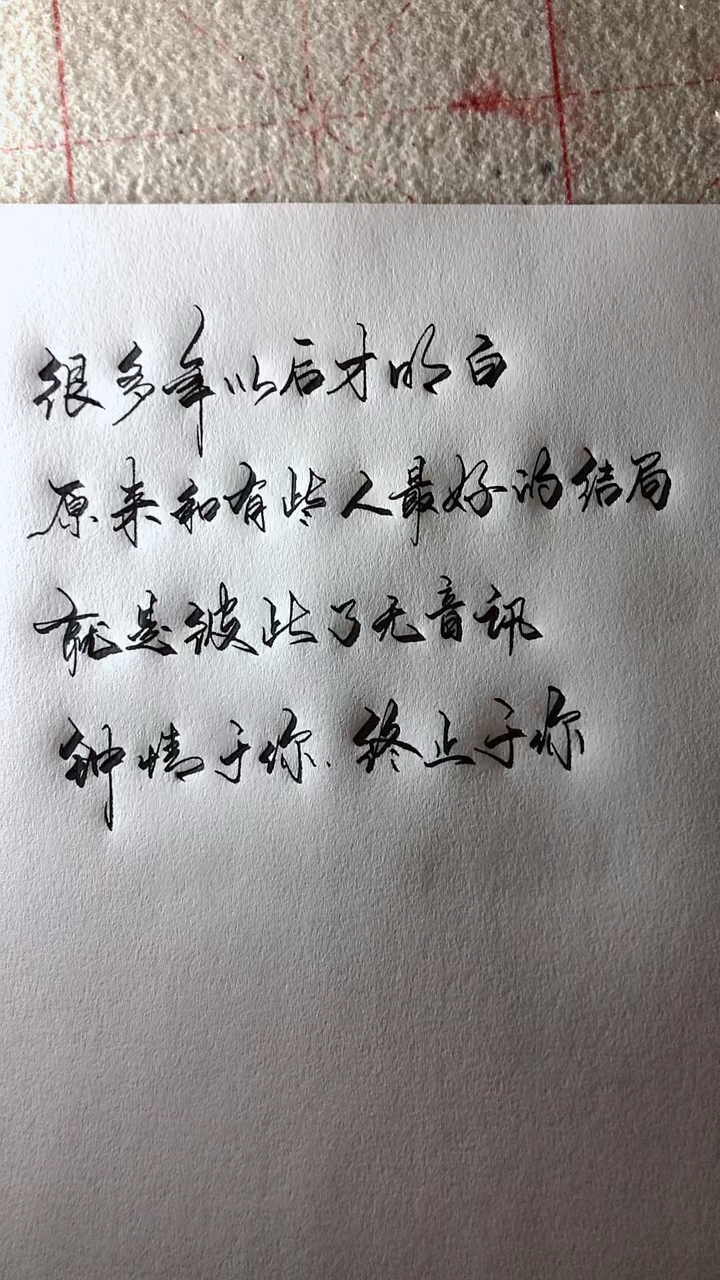 很多年以后才明白
原来和有些人最好的结局
就是彼此了无音讯
钟情于你.终止于你